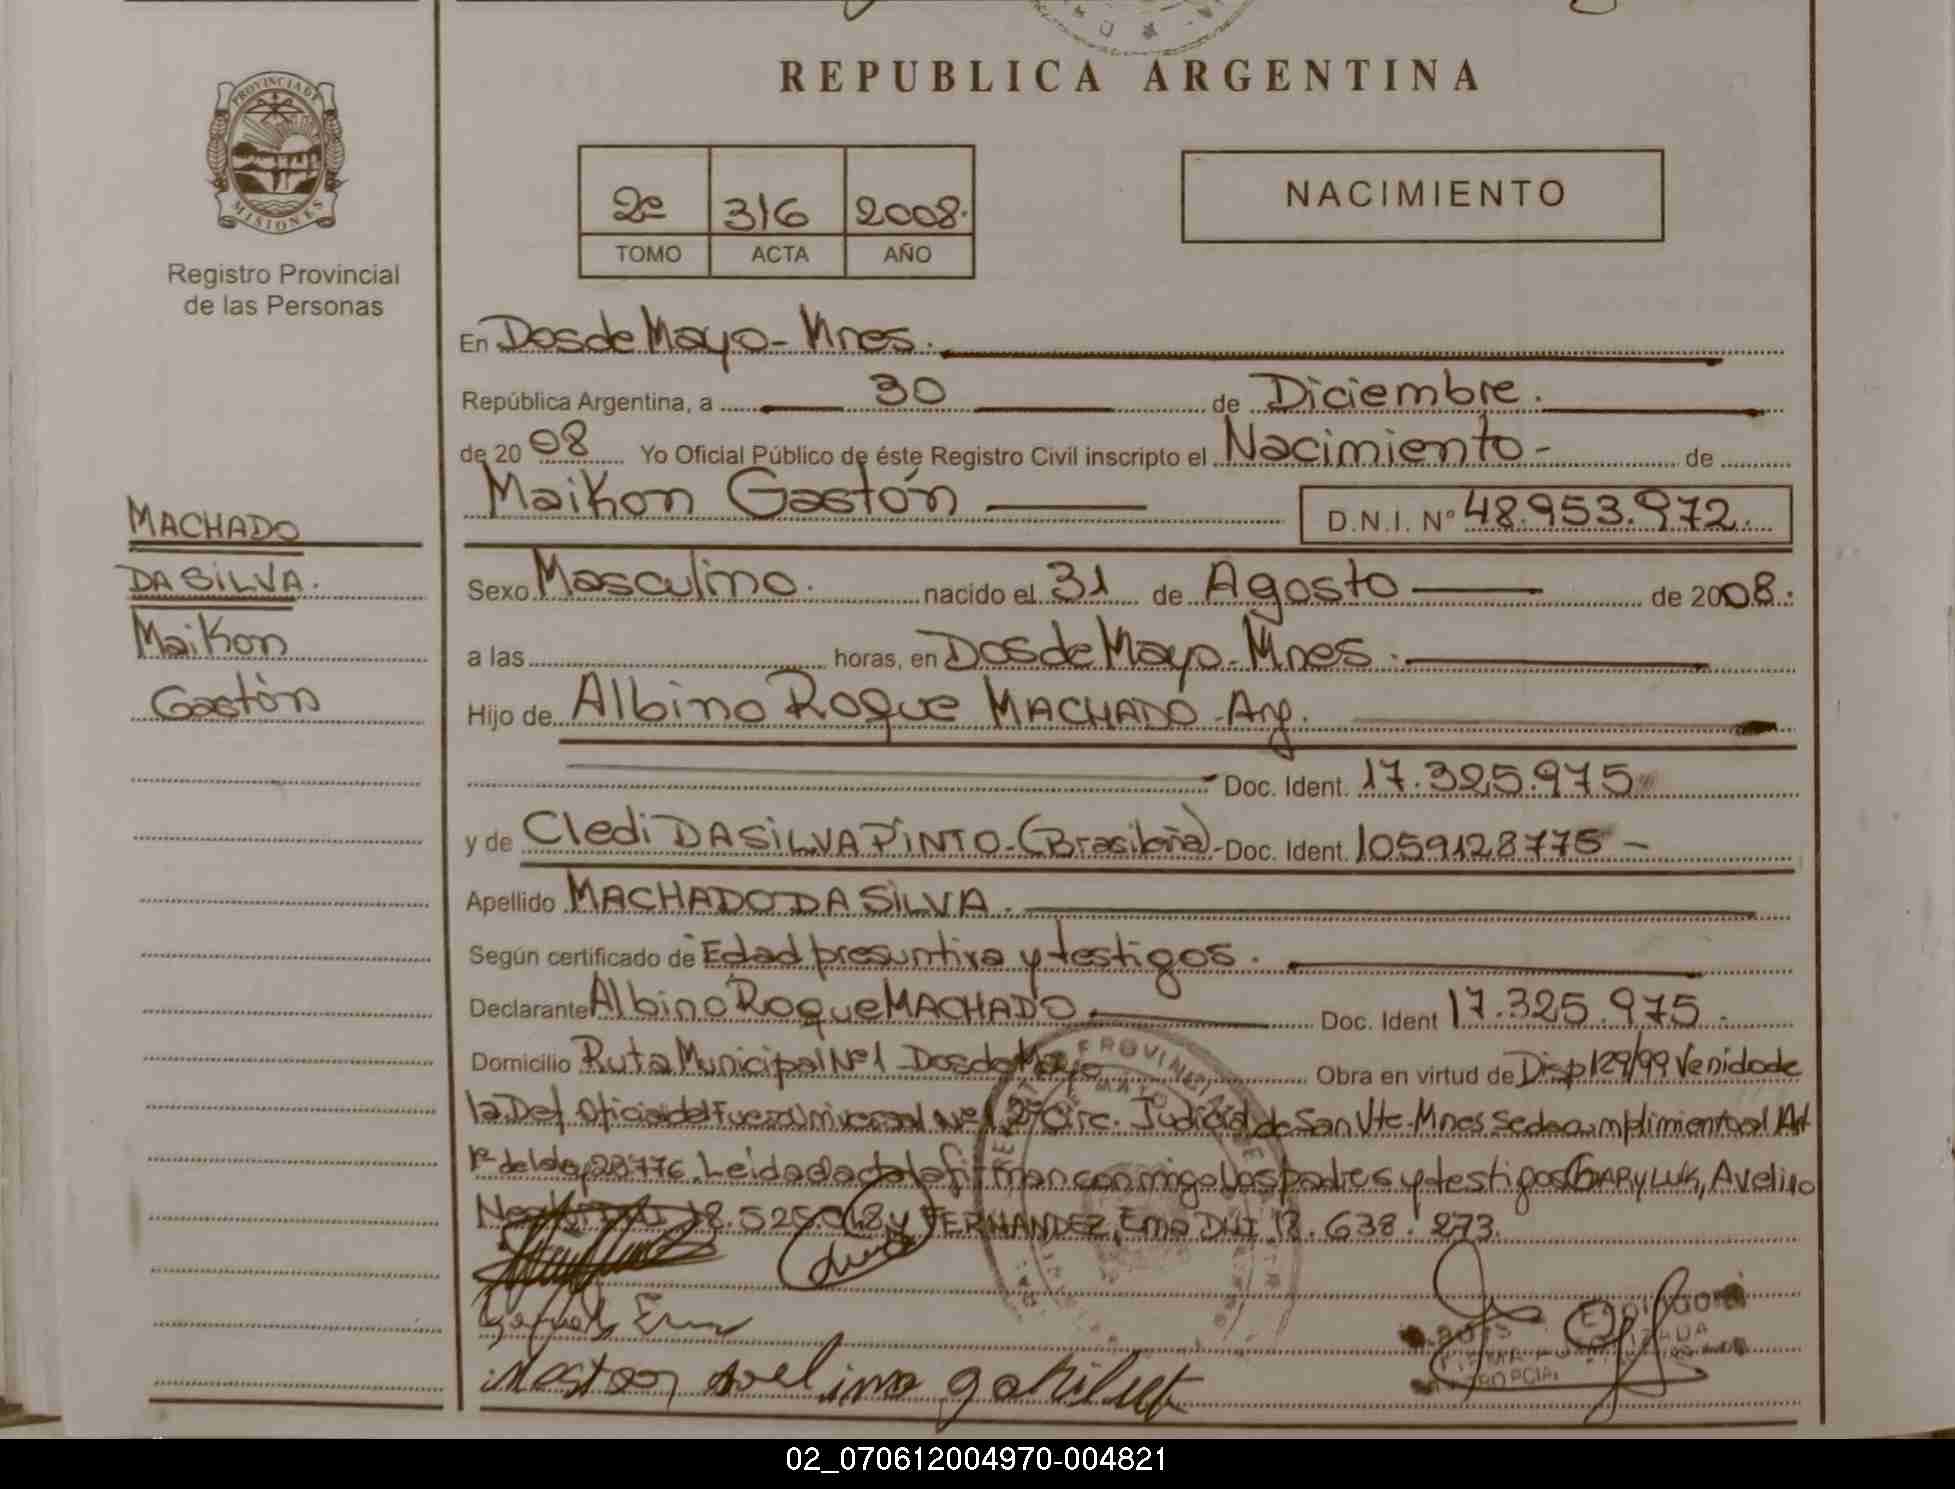 REPUBLICA ARGENTINA
PROVINCIA DE
MISIONES
Registro Provincial
de las Personas
2º 316 2008.
TOMO ACTA AÑO
NACIMIENTO
En Dos de Mayo - Mnes.
República Argentina, a 30 de Diciembre.
de 2008 Yo Oficial Público de éste Registro Civil inscripto el Nacimiento - de
Maikon Gastón D.N.I. Nº 48.953.972.
MACHADO
DA SILVA.
Maikon
Gastón
Sexo Masculino. nacido el 31 de Agosto de 2008.
a las horas, en Dos de Mayo - Mnes.
Hijo de Albino Roque MACHADO - Arg.
Doc. Ident. 17.325.975
y de Cledi DA SILVA PINTO - (Brasileña) - Doc. Ident. 1059128775 -
Apellido MACHADO DA SILVA.
Según certificado de Edad presuntiva y testigos.
Declarante Albino Roque MACHADO Doc. Ident 17.325.975.
Domicilio Ruta Municipal Nº 1 - Dos de Mayo Obra en virtud de Disp 129/99 Venido de
la Def. Oficial del Fuero Universal Nº 1 2º Circ. Judicial de San Vte - Mnes se dea cumplimiento al Art
1º de la ley 28776. Leida el acta la firman conmigo los padres y testigos GARYLUK, Avelino
18.525.048 y FERNANDEZ, Ema DNI 18.638.273.
PROVINCIAL
02_070612004970-004821